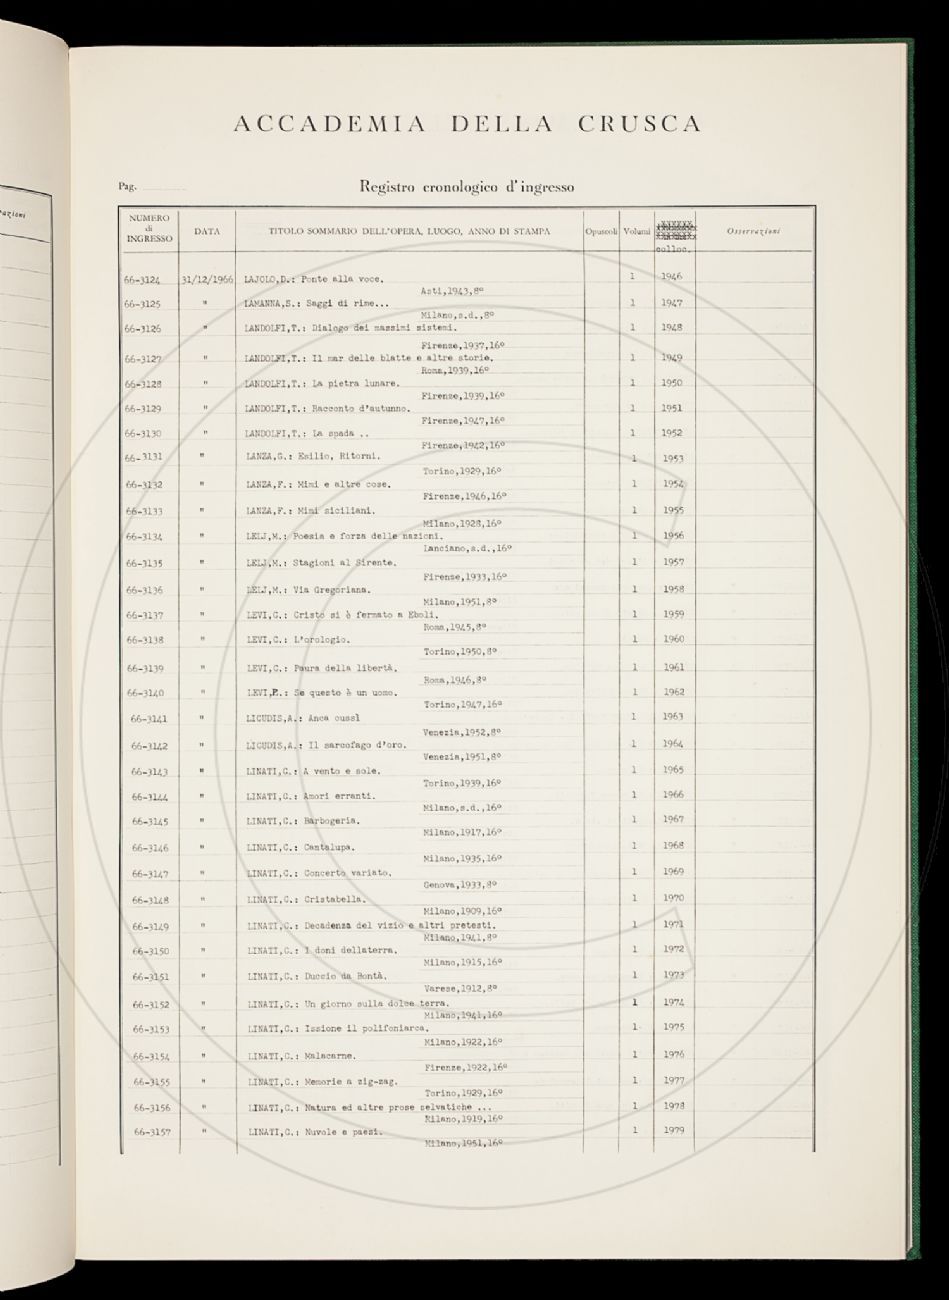 azioni
ACCADEMIA DELLA CRUSCA
Pag.
Registro cronologico d'ingresso
NUMERO di INGRESSO DATA TITOLO SOMMARIO DELL'OPERA, LUOGO, ANNO DI STAMPA Opuscoli Volumi colloc. Osservazioni
66-3124 31/12/1966 LAJOLO,D.: Ponte alla voce. 1 1946
Asti,1943,8°
66-3125 " LAMANNA,S.: Saggi di rime... 1 1947
Milano,s.d.,8°
66-3126 " LANDOLFI,T.: Dialogo dei massimi sistemi. 1 1948
Firenze,1937,16°
66-3127 " LANDOLFI,T.: Il mar delle blatte e altre storie. 1 1949
Roma,1939,16°
66-3128 " LANDOLFI,T.: La pietra lunare. 1 1950
Firenze,1939,16°
66-3129 " LANDOLFI,T.: Racconto d'autunno. 1 1951
Firenze,1947,16°
66-3130 " LANDOLFI,T.: La spada .. 1 1952
Firenze,1942,16°
66-3131 " LANZA,G.: Esilio, Ritorni. 1 1953
Torino,1929,16°
66-3132 " LANZA,F.: Mimi e altre cose. 1 1954
Firenze,1946,16°
66-3133 " LANZA,F.: Mimi siciliani. 1 1955
Milano,1928,16°
66-3134 " LELJ,M.: Poesia e forza delle nazioni. 1 1956
Lanciano,s.d.,16°
66-3135 " LELJ,M.: Stagioni al Sirente. 1 1957
Firenze,1933,16°
66-3136 " LELJ,M.: Via Gregoriana. 1 1958
Milano,1951,8°
66-3137 " LEVI,C.: Cristo si è fermato a Eboli. 1 1959
Roma,1945,8°
66-3138 " LEVI,C.: L'orologio. 1 1960
Torino,1950,8°
66-3139 " LEVI,C.: Paura della libertà. 1 1961
Roma,1946,8°
66-3140 " LEVI,P.: Se questo è un uomo. 1 1962
Torino,1947,16°
66-3141 " LICUDIS,A.: Anca oussl 1 1963
Venezia,1952,8°
66-3142 " LICUDIS,A.: Il sarcofago d'oro. 1 1964
Venezia,1951,8°
66-3143 " LINATI,C.: A vento e sole. 1 1965
Torino,1939,16°
66-3144 " LINATI,C.: Amori erranti. 1 1966
Milano,s.d.,16°
66-3145 " LINATI,C.: Barbogeria. 1 1967
Milano,1917,16°
66-3146 " LINATI,C.: Cantalupa. 1 1968
Milano,1935,16°
66-3147 " LINATI,C.: Concerto variato. 1 1969
Genova,1933,8°
66-3148 " LINATI,C.: Cristabella. 1 1970
Milano,1909,16°
66-3149 " LINATI,C.: Decadenza del vizio e altri pretesti. 1 1971
Milano,1941,8°
66-3150 " LINATI,C.: I doni dellaterra. 1 1972
Milano,1915,16°
66-3151 " LINATI,C.: Duccio da Bontà. 1 1973
Varese,1912,8°
66-3152 " LINATI,C.: Un giorno sulla dolce terra. 1 1974
Milano,1941,16°
66-3153 " LINATI,C.: Issione il polifoniarca. 1 1975
Milano,1922,16°
66-3154 " LINATI,C.: Malacarne. 1 1976
Firenze,1922,16°
66-3155 " LINATI,C.: Memorie a zig-zag. 1 1977
Torino,1929,16°
66-3156 " LINATI,C.: Natura ed altre prose selvatiche ... 1 1978
Milano,1919,16°
66-3157 " LINATI,C.: Nuvole e paesi. 1 1979
Milano,1951,16°